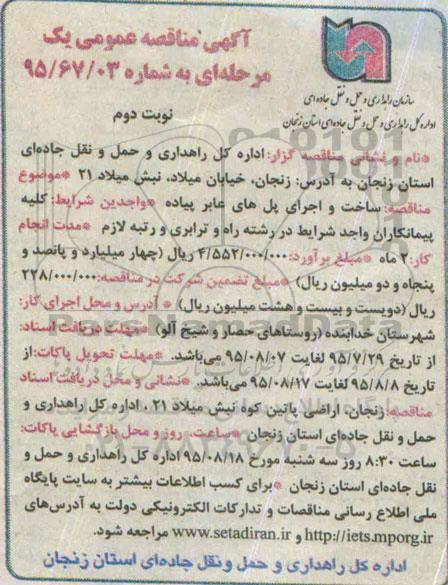 آگهی مناقصه عمومی یک
مرحله‌ای به شماره ۹۵/۶۷/۰۳
سازمان راهداری و حمل و نقل جاده‌ای
اداره کل راهداری و حمل و نقل جاده‌ای استان زنجان
نوبت دوم
*نام و نشانی مناقصه گزار: اداره کل راهداری و حمل و نقل جاده‌ای
استان زنجان به آدرس: زنجان، خیابان میلاد، نبش میلاد ۲۱ *موضوع
مناقصه: ساخت و اجرای پل های عابر پیاده *واجدین شرایط: کلیه
پیمانکاران واجد شرایط در رشته راه و ترابری و رتبه لازم *مدت انجام
کار: ۲ ماه *مبلغ برآورد: ۴/۵۵۲/۰۰۰/۰۰۰ ریال (چهار میلیارد و پانصد و
پنجاه و دو میلیون ریال) *مبلغ تضمین شرکت در مناقصه: ۲۲۸/۰۰۰/۰۰۰
ریال (دویست و بیست و هشت میلیون ریال) *آدرس و محل اجرای کار:
شهرستان خدابنده (روستاهای حصار و شیخ آلو) *مهلت دریافت اسناد:
از تاریخ ۹۵/۷/۲۹ لغایت ۹۵/۰۸/۰۷ می‌باشد. *مهلت تحویل پاکات: از
تاریخ ۹۵/۸/۸ لغایت ۹۵/۰۸/۱۷ می‌باشد. *نشانی و محل دریافت اسناد
مناقصه: زنجان، اراضی پائین کوه نبش میلاد ۲۱، اداره کل راهداری و
حمل و نقل جاده‌ای استان زنجان *ساعت، روز و محل بازگشایی پاکات:
ساعت ۸:۳۰ روز سه شنبه مورخ ۹۵/۰۸/۱۸ اداره کل راهداری و حمل و
نقل جاده‌ای استان زنجان *برای کسب اطلاعات بیشتر به سایت پایگاه
ملی اطلاع رسانی مناقصات و تدارکات الکترونیکی دولت به آدرس‌های
http://iets.mporg.ir و www.setadiran.ir مراجعه شود.
اداره کل راهداری و حمل و نقل جاده‌ای استان زنجان